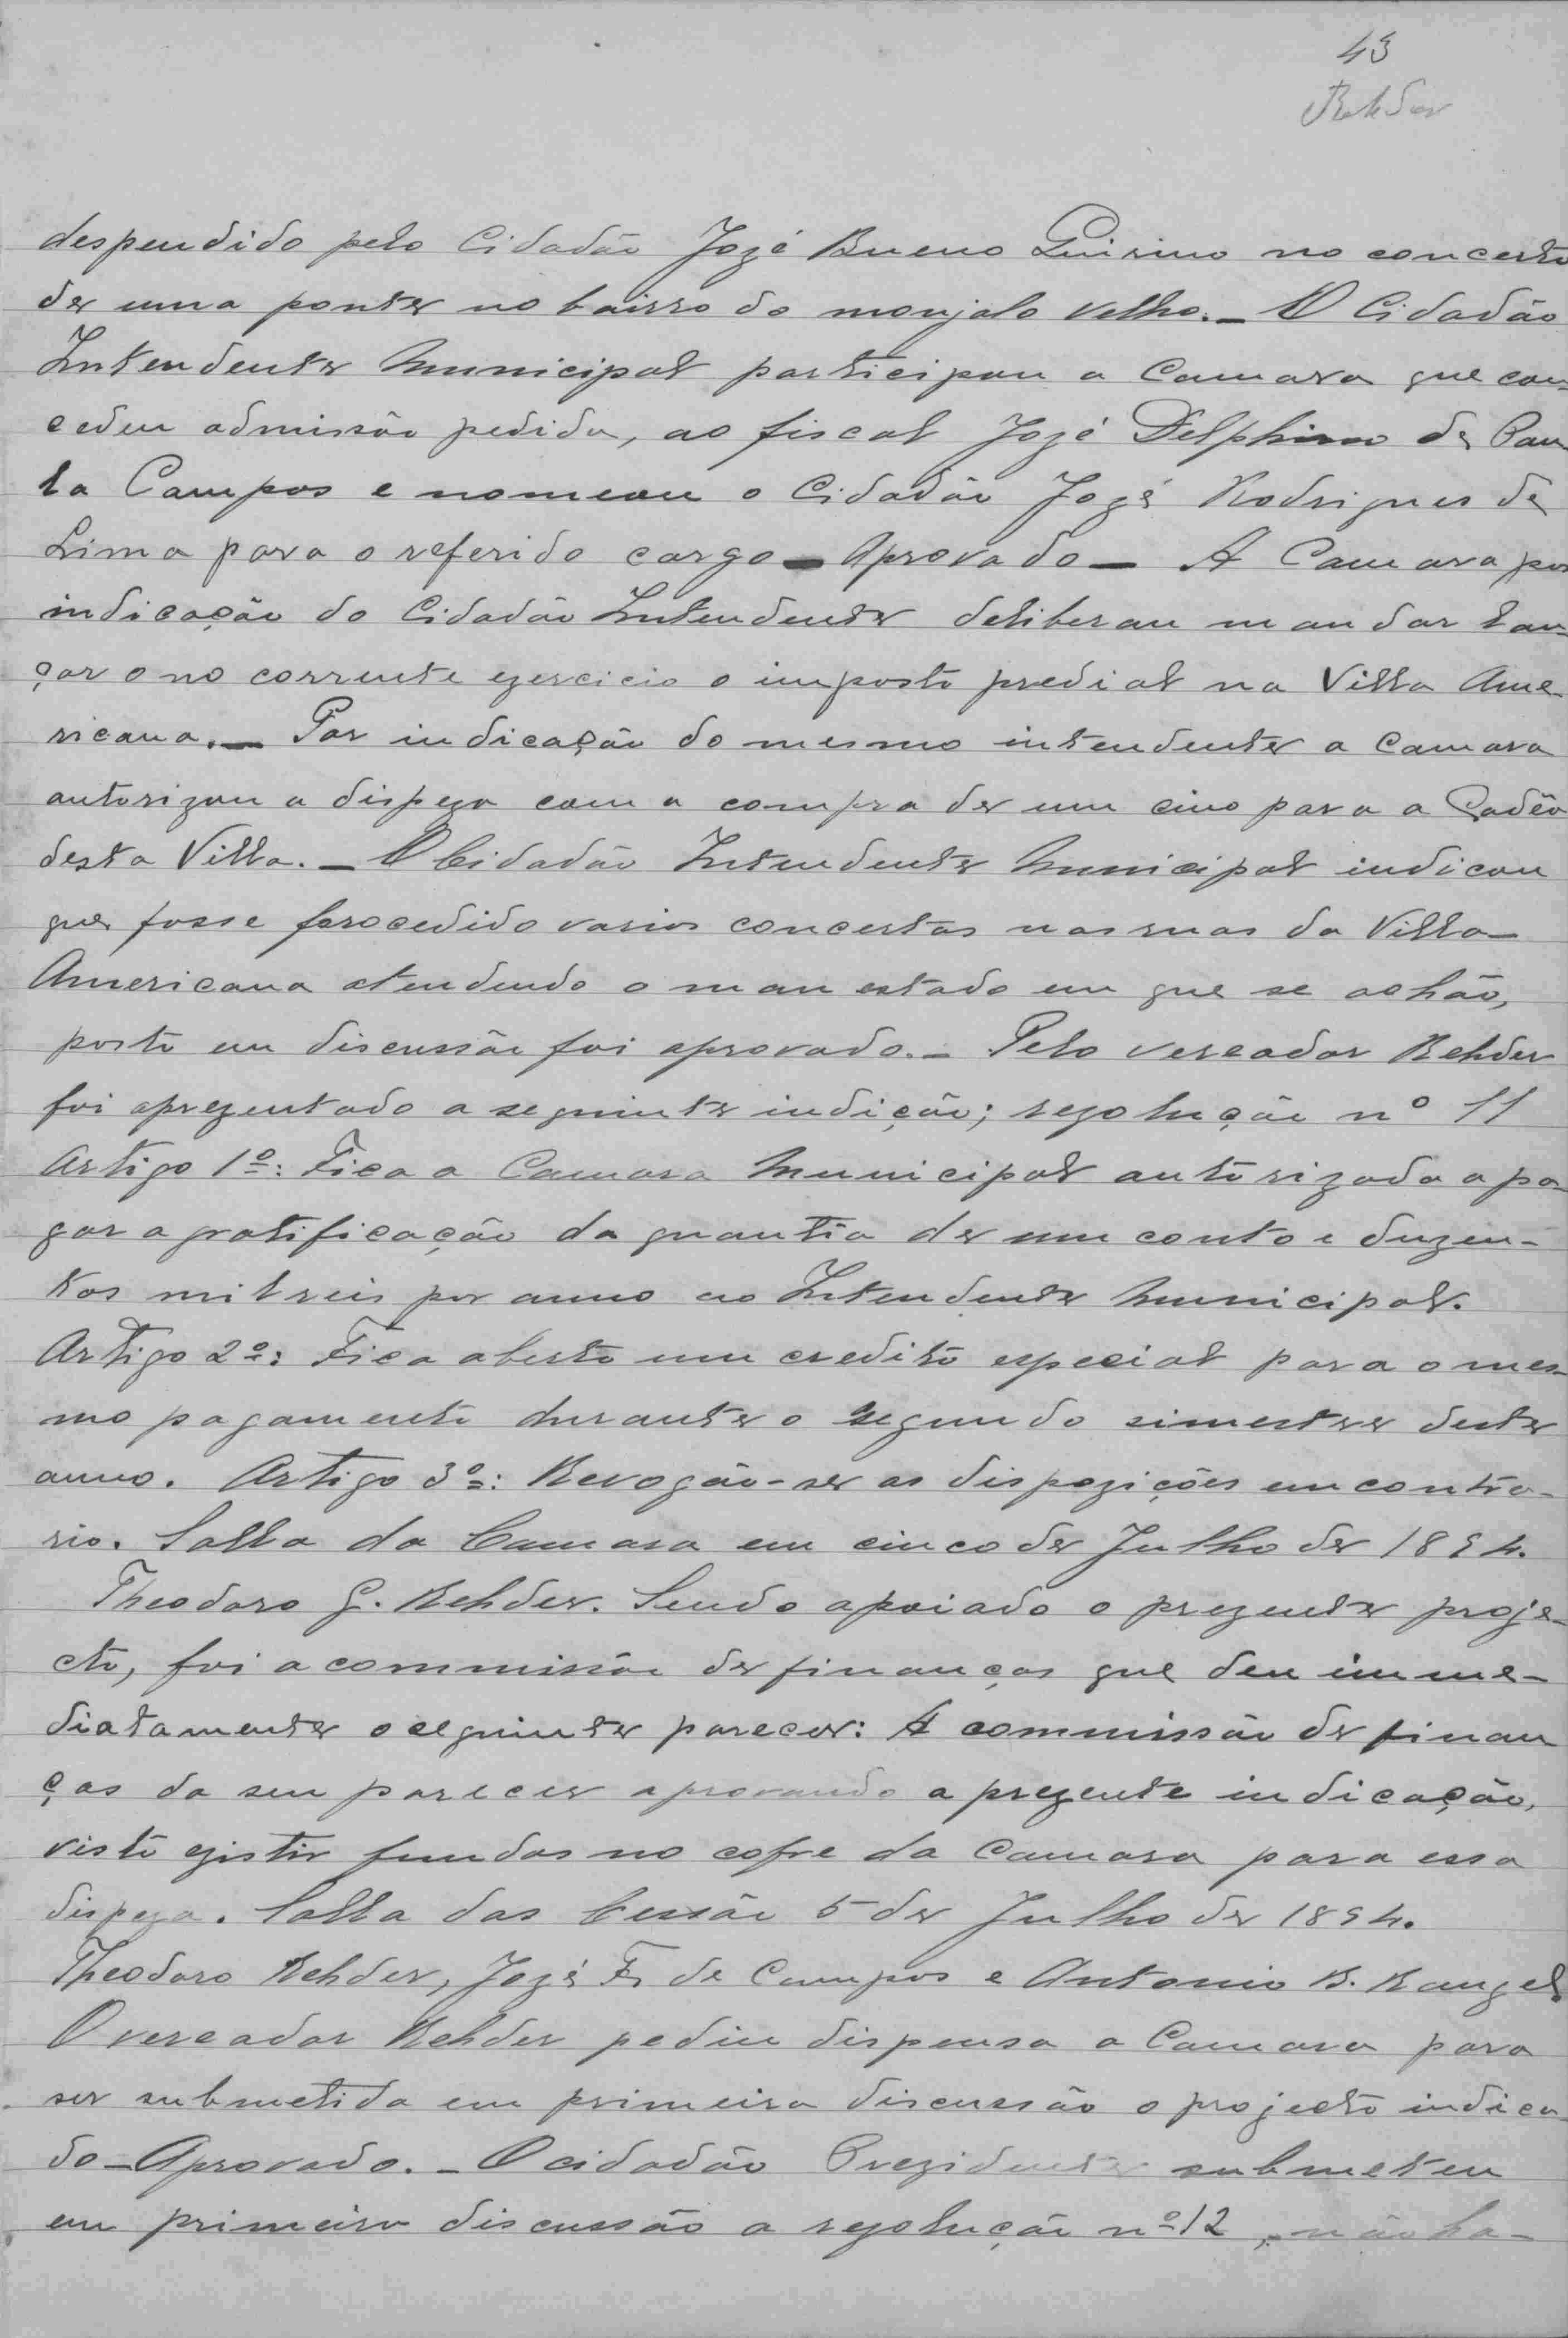 43
Rehder
despendido pelo Cidadão Jozé Bueno Quirino no concerto
de uma ponte no bairro do monjolo velho. _ O Cidadão
Intendente Municipal participou a Camara que con=
cedeu admissão pedida, ao fiscal Jozé Delphino de Pau
la Campos e nomeou o Cidadão Jozé Rodrigues de
Lima para o referido cargo _ Aprovado _ A Camara por
indicação do Cidadão Intendente deliberau mandar lan=
çar o no corrente ezercicio o imposto predial na Villa Ame-
ricana. _ Por indicação do mesmo intendente a Camara
autorizou a dispeza com a compra de um cino para a Cadêa
desta Villa. _ O Cidadão Intendente Municipal indicou
que fosse procedido varios concertos nas ruas da Villa
Americana atendendo o mau estado em que se achão,
posto em discussão foi aprovado. _ Pelo vereador Rehder
foi aprezentado a seguinte indição; rezolução nº 11
Artigo 1º: Fica a Camara Municipal autorizada a pa-
gar a gratificação da quantia de um conto e duzen-
tos mil reis por anno ao Intendente Municipal.
Artigo 2º: Fica aberto um credito especial para o mes-
mo pagamento durante o segundo simestre deste
anno. Artigo 3º: Revogão-se as dispozições em contra-
rio. Salla da Camara em cinco de Julho de 1894.
Theodoro G. Rehder. Sendo apoiado o prezente proje-
cto, foi a commissão de finanças que deu imme-
diatamente o seguinte parecer: A commissão de finan
ças da seu parecer aprovando a prezente indicação,
visto ezistir fundos no cofre da Camara para essa
dispeza. Salla das Cessão 5 de Julho de 1894.
Theodoro Rehder, Jozé F. de Campos e Antonio B. Rangel.
O vereador Rehder pediu dispensa a Camara para
ser submetida em primeira discussão o projecto indica
do _ Aprovado. _ O cidadão Prezidente submeteu
em primeira discussão a rezolução nº 12, não ha-